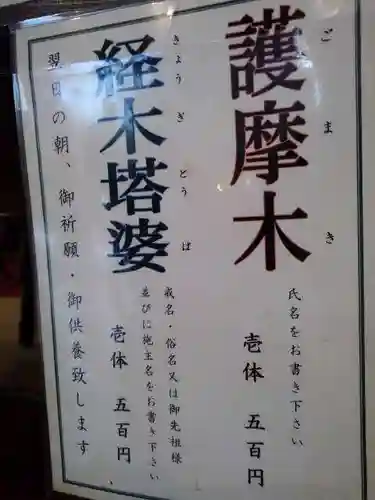 護摩木
ごまき
氏名をお書き下さい
壱体 五百円
経木塔婆
きょうぎとうば
戒名・俗名又は御先祖様
並びに施主名をお書き下さい
壱体 五百円
翌日の朝、御祈願・御供養致します